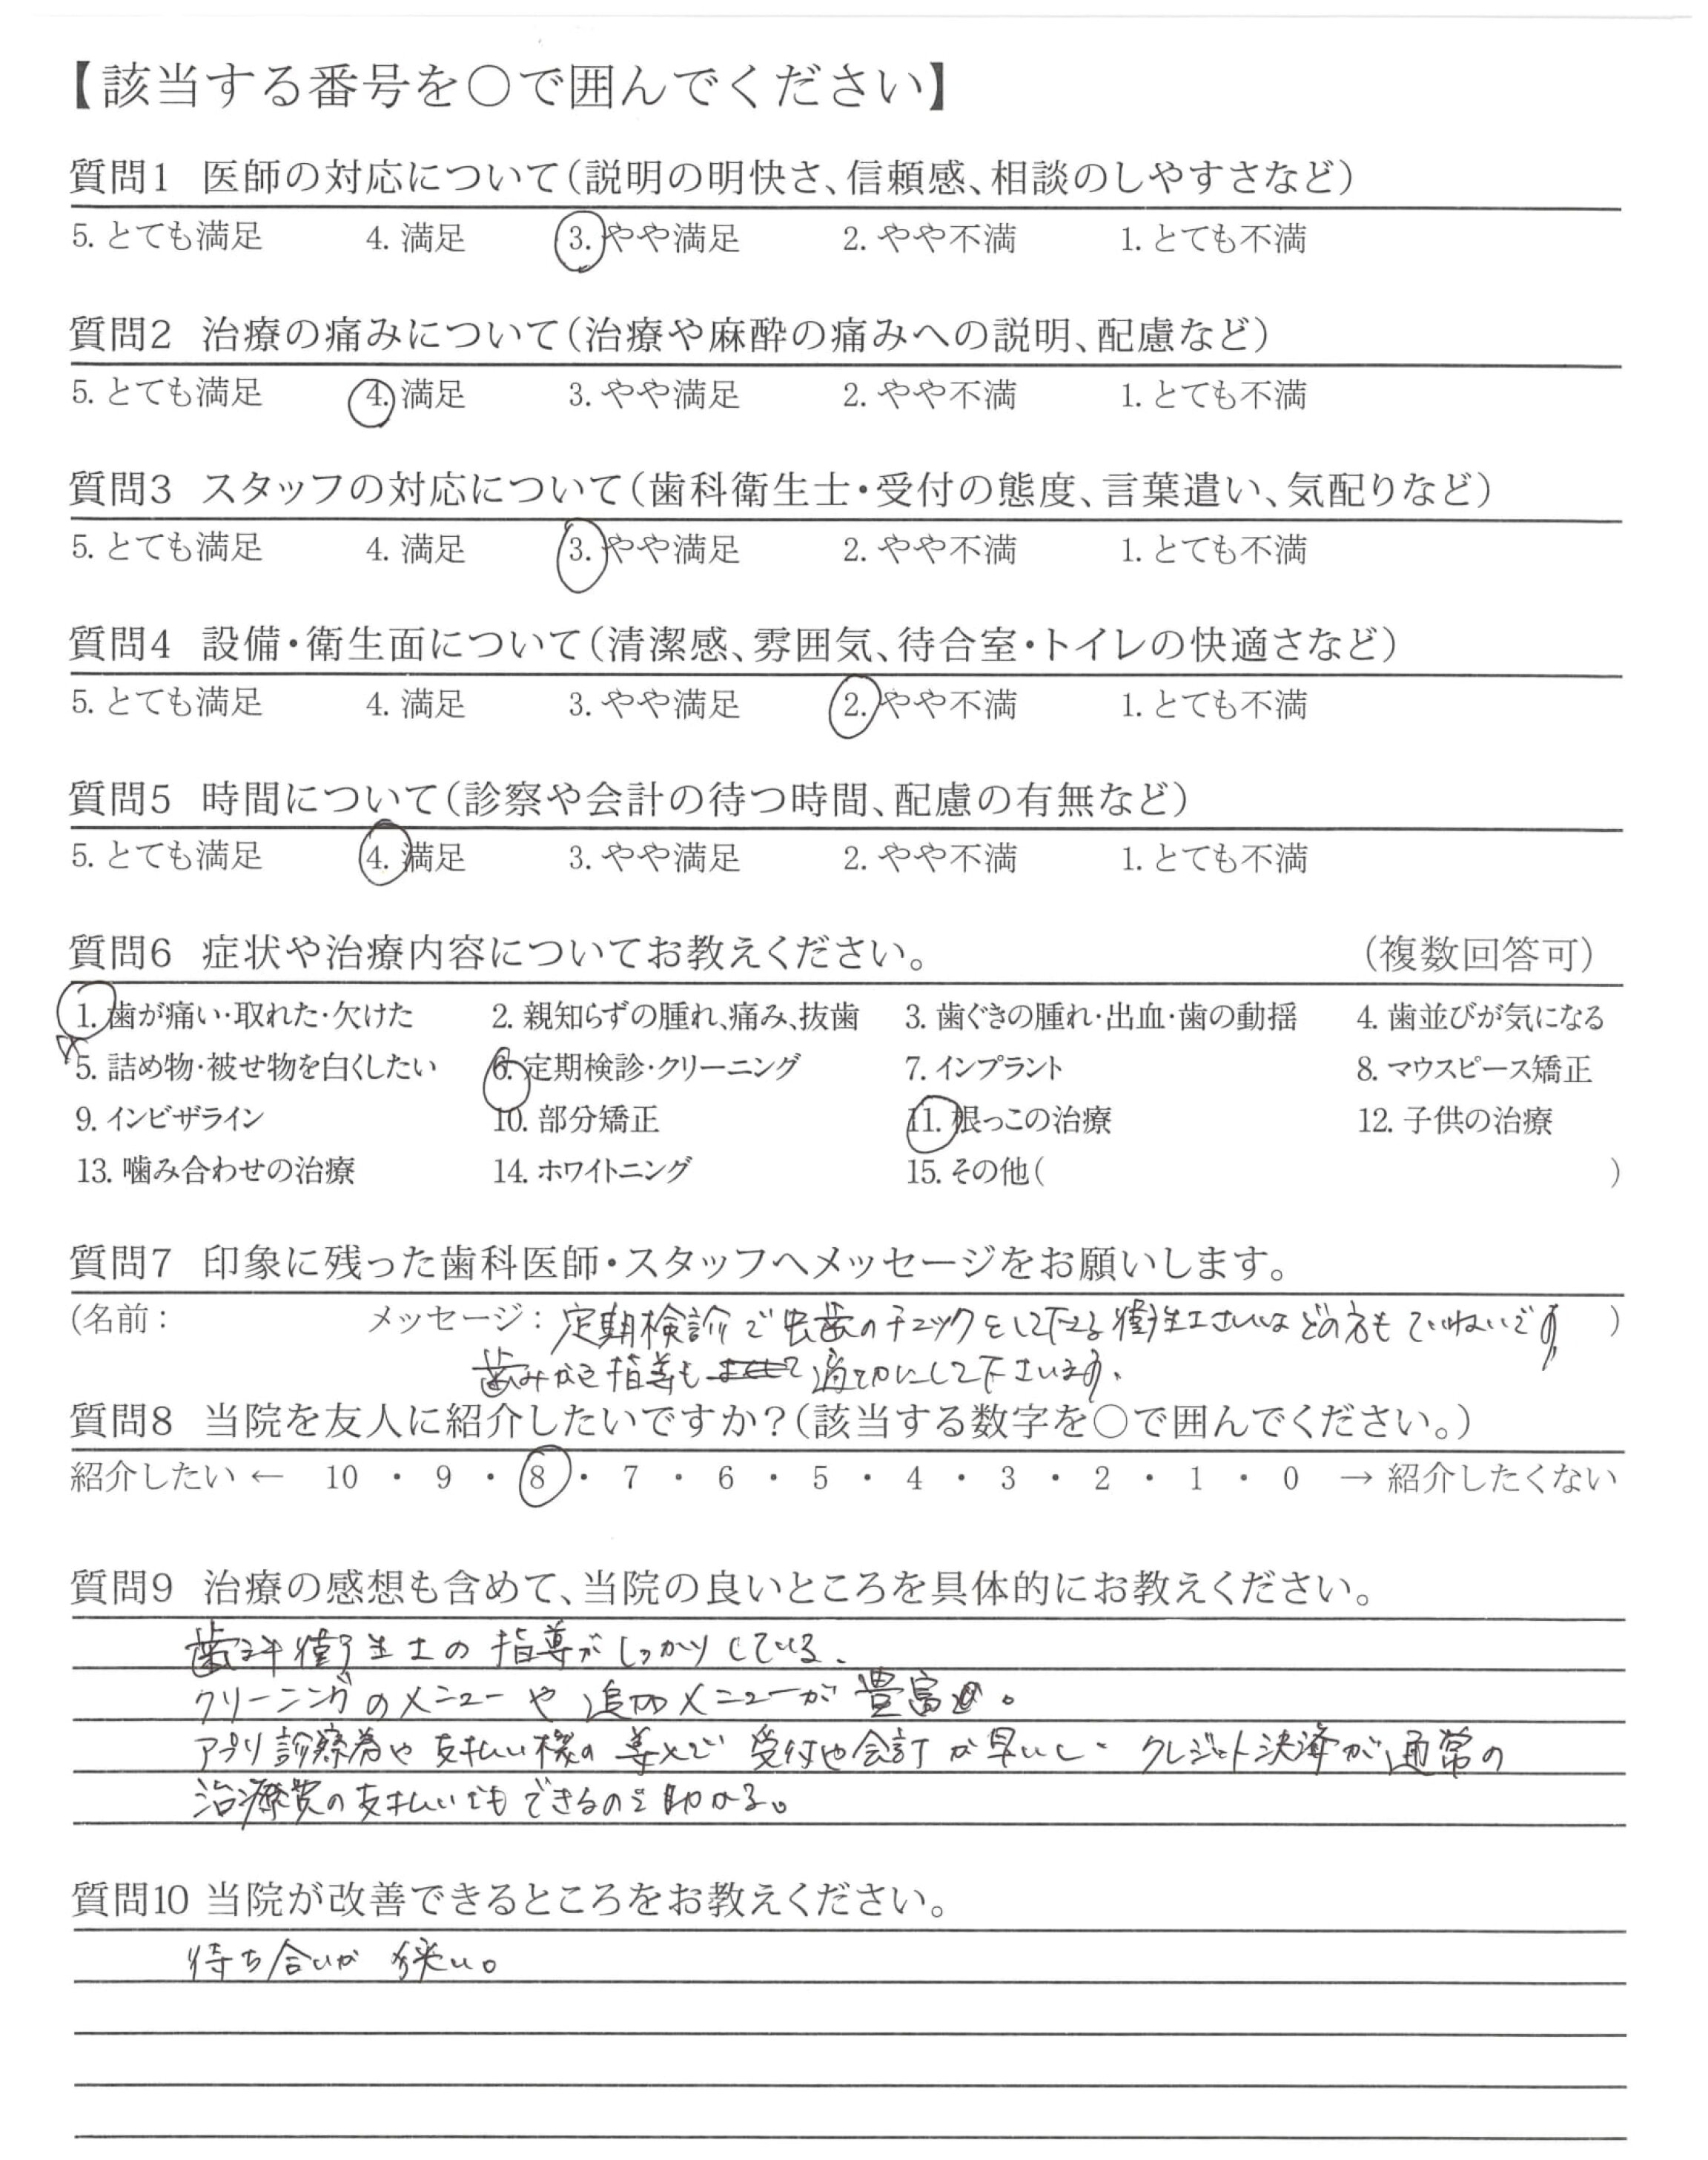 【該当する番号を○で囲んでください】
質問1 医師の対応について(説明の明快さ、信頼感、相談のしやすさなど)
5. とても満足 4. 満足 3. やや満足 2. やや不満 1. とても不満
質問2 治療の痛みについて(治療や麻酔の痛みへの説明、配慮など)
5. とても満足 4. 満足 3. やや満足 2. やや不満 1. とても不満
質問3 スタッフの対応について(歯科衛生士・受付の態度、言葉遣い、気配りなど)
5. とても満足 4. 満足 3. やや満足 2. やや不満 1. とても不満
質問4 設備・衛生面について(清潔感、雰囲気、待合室・トイレの快適さなど)
5. とても満足 4. 満足 3. やや満足 2. やや不満 1. とても不満
質問5 時間について(診察や会計の待つ時間、配慮の有無など)
5. とても満足 4. 満足 3. やや満足 2. やや不満 1. とても不満
質問6 症状や治療内容についてお教えください。 (複数回答可)
1. 歯が痛い・取れた・欠けた 2. 親知らずの腫れ、痛み、抜歯 3. 歯ぐきの腫れ・出血・歯の動揺 4. 歯並びが気になる
5. 詰め物・被せ物を白くしたい 6. 定期検診・クリーニング 7. インプラント 8. マウスピース矯正
9. インビザライン 10. 部分矯正 11. 根っこの治療 12. 子供の治療
13. 噛み合わせの治療 14. ホワイトニング 15. その他( )
質問7 印象に残った歯科医師・スタッフへメッセージをお願いします。
(名前: メッセージ: 定期検診で虫歯のチェックをして下さる衛生士さんはどの方もていねいです )
歯みがき指導も 適切にして下さいます。
質問8 当院を友人に紹介したいですか?(該当する数字を○で囲んでください。)
紹介したい ← 10 ・ 9 ・ 8 ・ 7 ・ 6 ・ 5 ・ 4 ・ 3 ・ 2 ・ 1 ・ 0 → 紹介したくない
質問9 治療の感想も含めて、当院の良いところを具体的にお教えください。
歯科衛生士の指導がしっかりしている。
クリーニングのメニューや追加メニューが豊富。
アプリ診察券や支払い機の導入で受付や会計が早いし、クレジット決済が通常の
治療費の支払いでもできるので助かる。
質問10 当院が改善できるところをお教えください。
待ち合いが狭い。